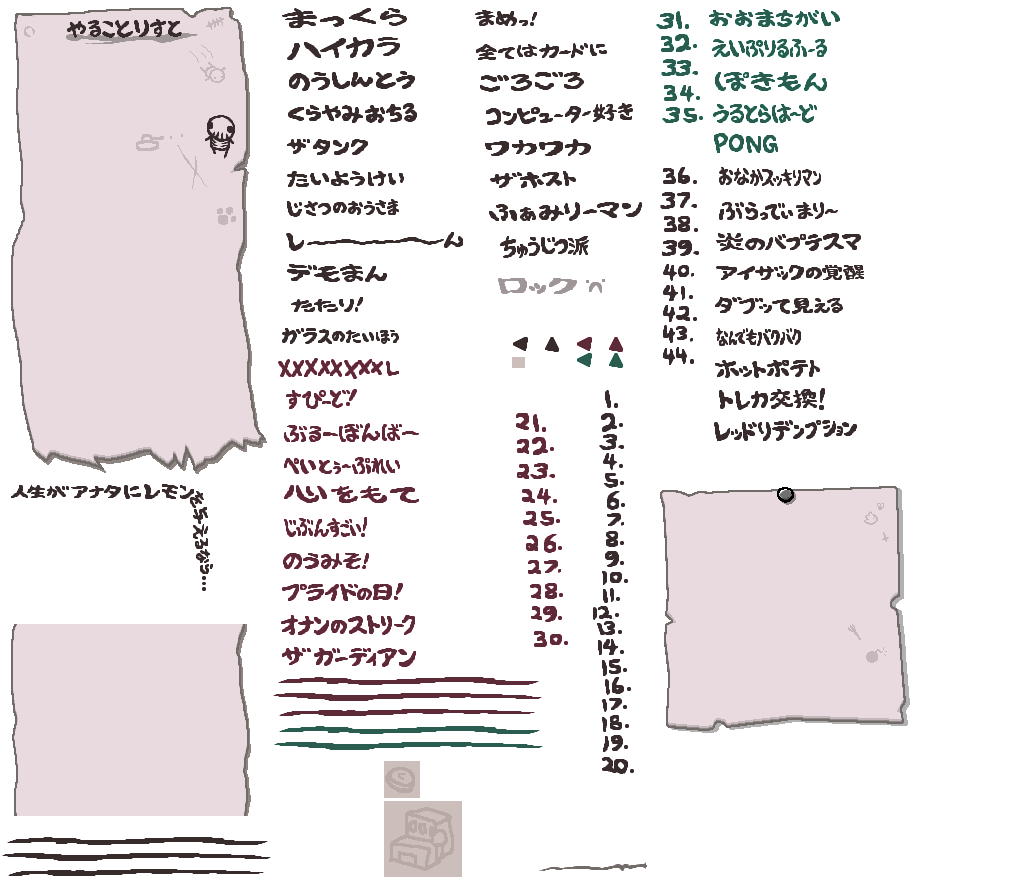 やることりすと
人生がアナタにレモン
を与えるなら...
まっくら
ハイカラ
のうしんとう
くらやみおちる
ザタンク
たいようけい
じさつのおうさま
し〜ん
デモまん
たたり!
ガラスのたいほう
XXXXXXXXL
すぴーど!
ぶるーぼんばー
ぺいとぅーぷれい
ハいをもて
じぶんすごい!
のうみそ!
プライドの日!
オナンのストリーク
ザガーディアン
まめっ!
全てはカードに
ごろごろ
コンピューター好き
ワカワカ
ザホスト
ふぁみりーマン
ちゅうじつ派
ロック
21.
22.
23.
24.
25.
26.
27.
28.
29.
30.
1.
2.
3.
4.
5.
6.
7.
8.
9.
10.
11.
12.
13.
14.
15.
16.
17.
18.
19.
20.
31.
32.
33.
34.
35.
36.
37.
38.
39.
40.
41.
42.
43.
44.
おおまちがい
えいぷりるふーる
ぽきもん
うるとらはーど
PONG
おなかスッキリマン
ぶらっでぃまりー
炎のバプテスマ
アイザックの覚醒
ダブって見える
なんでもパクパク
ホットポテト
トレカ交換!
レッドリデンプション